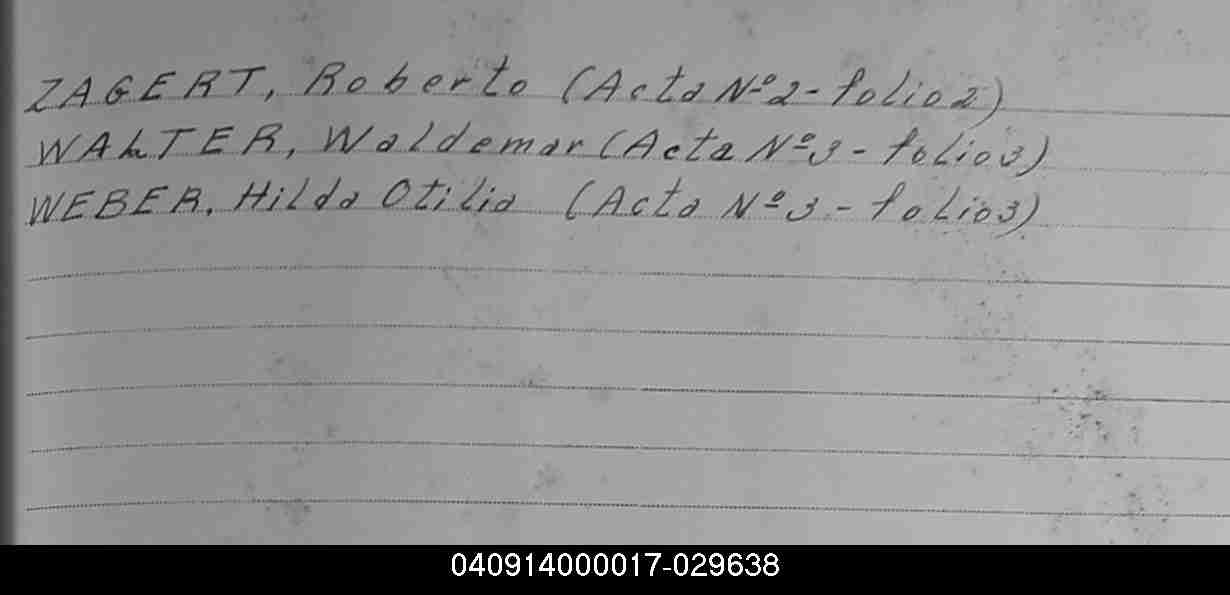 ZAGERT, Roberto (Acta Nº 2 - folio 2)
WALTER, Waldemar (Acta Nº 3 - folio 3)
WEBER, Hilda Otilia (Acta Nº 3 - folio 3)
040914000017-029638